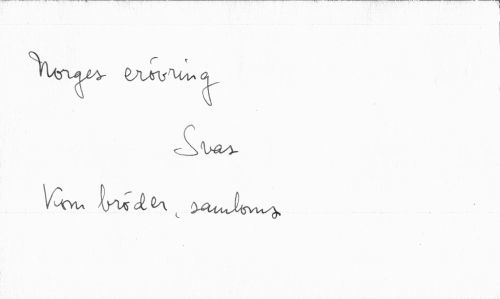 Norges erövring
Svas
Kom bröder, samloms